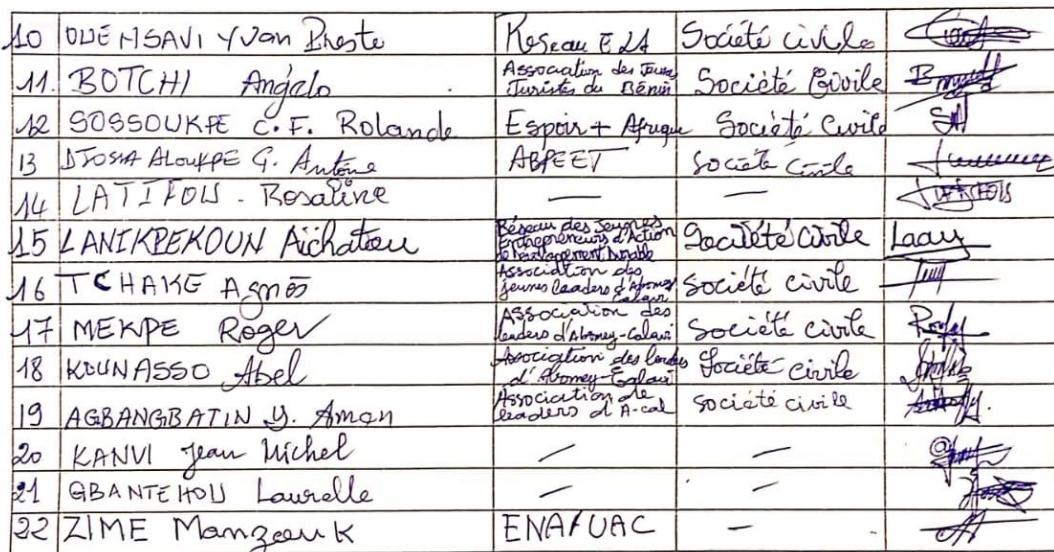 10 OUENSAVI Yvon Preste Réseau E LA Société civile
11. BOTCHI Angelo Association des Jeunes Juristes du Bénin Société Civile
12 SOSSOUKPE C. F. Rolande Espoir + Afrique Société Civile
13 DJOSSA ALOUKPE G. Antoine ABPEET Société Civile
14 LATIFOU - Rosaline — —
15 LANIKPEKOUN Aïchatou Réseau des Jeunes Entrepreneurs d'Action de Développement Durable Société Civile
16 TCHAKE Agnès Association des jeunes leaders d'Abomey Calavi Société civile
17 MEKPE Roger Association des leaders d'Abomey-Calavi Société civile
18 KOUNASSO Abel Association des leaders d'Abomey-Calavi Société civile
19 AGBANGBATIN Y. Aman Association de leaders d'A-cal Société civile
20 KANVI Jean Michel — —
21 GBANTEHOU Laurelle — —
22 ZIME Manzouk ENA/UAC —